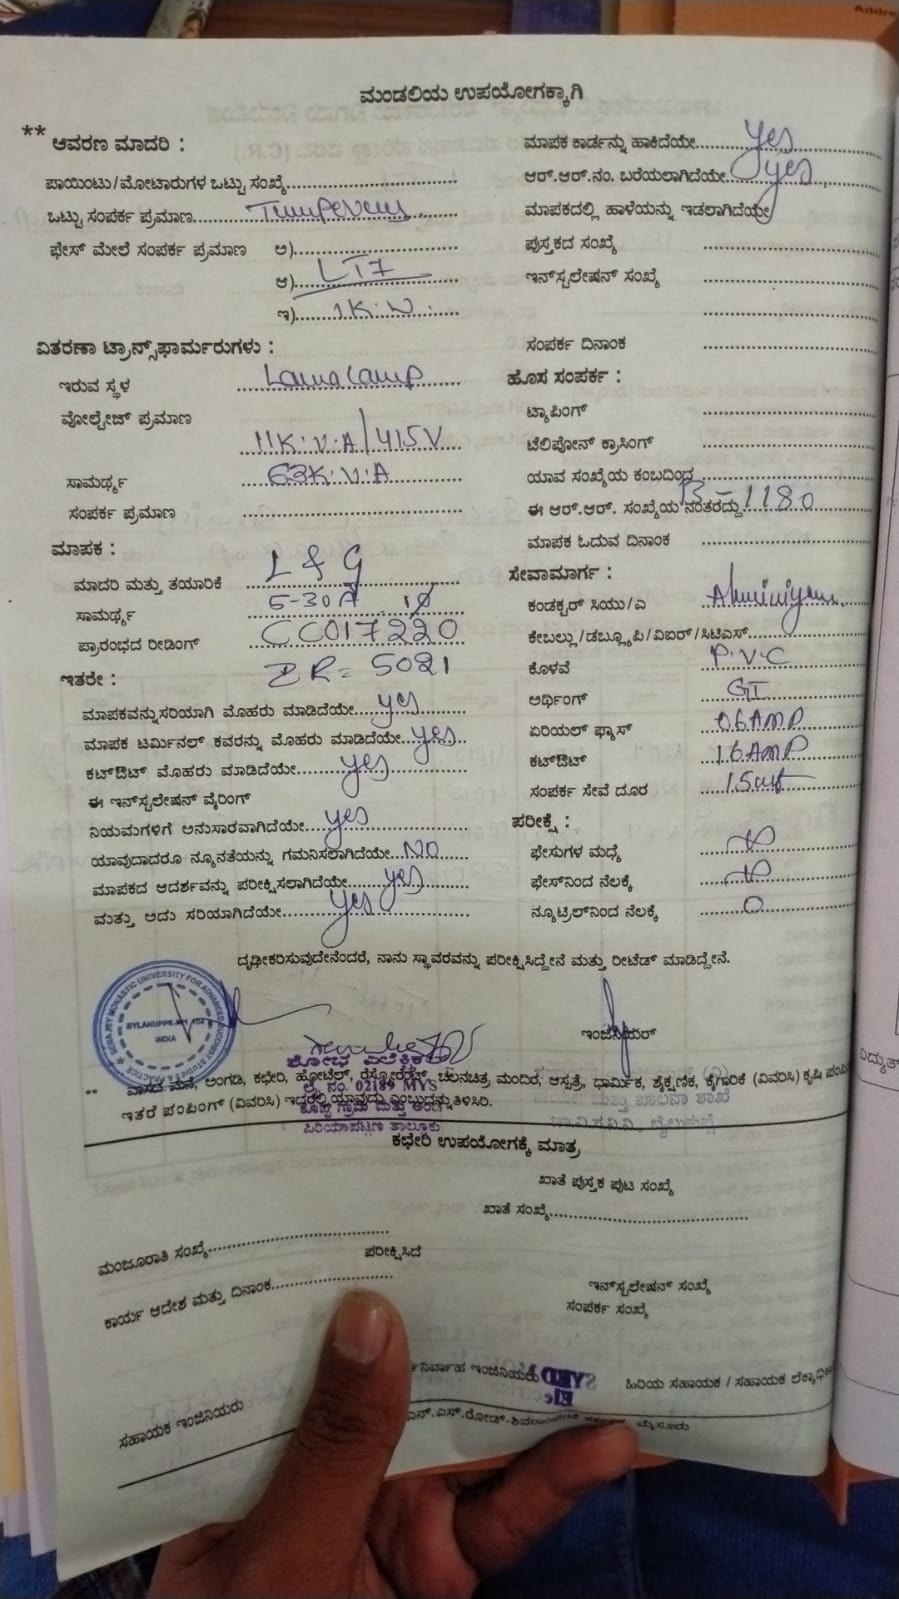 Addre
ಮಂಡಲಿಯ ಉಪಯೋಗಕ್ಕಾಗಿ
** ಆವರಣ ಮಾದರಿ :
ಪಾಯಿಂಟು/ಮೋಟಾರುಗಳ ಒಟ್ಟು ಸಂಖ್ಯೆ
ಒಟ್ಟು ಸಂಪರ್ಕ ಪ್ರಮಾಣ
ಫೇಸ್ ಮೇಲೆ ಸಂಪರ್ಕ ಪ್ರಮಾಣ ಅ)
ಆ) LT7
ಇ) 1K.W.
ವಿತರಣಾ ಟ್ರಾನ್ಸ್‌ಫಾರ್ಮರುಗಳು :
ಇರುವ ಸ್ಥಳ Lama Camp
ವೋಲ್ಟೇಜ್ ಪ್ರಮಾಣ
11K.V.A/415V
ಸಾಮರ್ಥ್ಯ 63K.V.A
ಸಂಪರ್ಕ ಪ್ರಮಾಣ
ಮಾಪಕ :
ಮಾದರಿ ಮತ್ತು ತಯಾರಿಕೆ L & G
ಸಾಮರ್ಥ್ಯ 5-30A 1Ø
ಪ್ರಾರಂಭದ ರೀಡಿಂಗ್ CC017220
ಇತರೇ : = 5021
ಮಾಪಕವನ್ನು ಸರಿಯಾಗಿ ಮೊಹರು ಮಾಡಿದೆಯೇ yes
ಮಾಪಕ ಟರ್ಮಿನಲ್ ಕವರನ್ನು ಮೊಹರು ಮಾಡಿದೆಯೇ yes
ಕಟ್‌ಔಟ್ ಮೊಹರು ಮಾಡಿದೆಯೇ yes
ಈ ಇನ್‌ಸ್ಟಲೇಷನ್ ವೈರಿಂಗ್
ನಿಯಮಗಳಿಗೆ ಅನುಸಾರವಾಗಿದೆಯೇ yes
ಯಾವುದಾದರೂ ನ್ಯೂನತೆಯನ್ನು ಗಮನಿಸಲಾಗಿದೆಯೇ NO
ಮಾಪಕದ ಆದರ್ಶವನ್ನು ಪರೀಕ್ಷಿಸಲಾಗಿದೆಯೇ yes
ಮತ್ತು ಅದು ಸರಿಯಾಗಿದೆಯೇ yes
ಮಾಪಕ ಕಾರ್ಡನ್ನು ಹಾಕಿದೆಯೇ yes
ಆರ್.ಆರ್.ನಂ. ಬರೆಯಲಾಗಿದೆಯೇ yes
ಮಾಪಕದಲ್ಲಿ ಹಾಳೆಯನ್ನು ಇಡಲಾಗಿದೆಯೇ
ಪುಸ್ತಕದ ಸಂಖ್ಯೆ
ಇನ್‌ಸ್ಟಲೇಷನ್ ಸಂಖ್ಯೆ
ಸಂಪರ್ಕ ದಿನಾಂಕ
ಹೊಸ ಸಂಪರ್ಕ :
ಟ್ಯಾಪಿಂಗ್
ಟೆಲಿಫೋನ್ ಕ್ರಾಸಿಂಗ್
ಯಾವ ಸಂಖ್ಯೆಯ ಕಂಬದಿಂದ
ಈ ಆರ್.ಆರ್. ಸಂಖ್ಯೆಯ ನಂತರದ್ದು B-1180
ಮಾಪಕ ಓದುವ ದಿನಾಂಕ
ಸೇವಾಮಾರ್ಗ :
ಕಂಡಕ್ಟರ್ ಸಿಯು/ಎ Aluminiyam
ಕೇಬಲ್ಲು/ಡಬ್ಲ್ಯೂಪಿ/ವಿಐಆರ್/ಸಿಟಿಎಸ್
ಕೊಳವೆ P.V.C
ಅರ್ಥಿಂಗ್ GI
ಏರಿಯಲ್ ಫ್ಯೂಸ್ 06AMP
ಕಟ್‌ಔಟ್ 16AMP
ಸಂಪರ್ಕ ಸೇವೆ ದೂರ
ಪರೀಕ್ಷೆ :
ಫೇಸುಗಳ ಮಧ್ಯೆ
ಫೇಸ್‌ನಿಂದ ನೆಲಕ್ಕೆ
ನ್ಯೂಟ್ರಲ್‌ನಿಂದ ನೆಲಕ್ಕೆ 0
ದೃಢೀಕರಿಸುವುದೇನೆಂದರೆ, ನಾನು ಸ್ಥಾವರವನ್ನು ಪರೀಕ್ಷಿಸಿದ್ದೇನೆ ಮತ್ತು ರೀಟೆಡ್ ಮಾಡಿದ್ದೇನೆ.
MONASTIC UNIVERSITY FOR ADVANCED BUDDHIST STUDIES & PRACTICE
BYLAKUPPE
INDIA
ಇಂಜಿನಿಯರ್
ಶೋಭ ಎಲೆಕ್ಟ್ರಿಕಲ್
** ವಾಸದ ಮನೆ, ಅಂಗಡಿ, ಕಛೇರಿ, ಹೋಟೆಲ್, ರೆಸ್ಟೋರೆಂಟ್, ಚಲನಚಿತ್ರ ಮಂದಿರ, ಆಸ್ಪತ್ರೆ, ಧಾರ್ಮಿಕ, ಶೈಕ್ಷಣಿಕ, ಕೈಗಾರಿಕೆ (ವಿವರಿಸಿ) ಕೃಷಿ ಪಂಪಿ
ಲೈ. ನಂ. 02189 MYS
ಇತರೆ ಪಂಪಿಂಗ್ (ವಿವರಿಸಿ) ಇದರಲ್ಲಿ ಯಾವುದು ಎಂಬುದನ್ನು ತಿಳಿಸಿರಿ.
ಪಿರಿಯಾಪಟ್ಟಣ ತಾಲೂಕು
ಕಛೇರಿ ಉಪಯೋಗಕ್ಕೆ ಮಾತ್ರ
ಖಾತೆ ಪುಸ್ತಕ ಪುಟ ಸಂಖ್ಯೆ
ಖಾತೆ ಸಂಖ್ಯೆ
ಮಂಜೂರಾತಿ ಸಂಖ್ಯೆ
ಪರೀಕ್ಷಿಸಿದೆ
ಕಾರ್ಯ ಆದೇಶ ಮತ್ತು ದಿನಾಂಕ
ಇನ್‌ಸ್ಟಲೇಷನ್ ಸಂಖ್ಯೆ
ಸಂಪರ್ಕ ಸಂಖ್ಯೆ
ಸಹಾಯಕ ಇಂಜಿನಿಯರು
ನಿರ್ವಾಹ ಇಂಜಿನಿಯರು
ಹಿರಿಯ ಸಹಾಯಕ / ಸಹಾಯಕ ಲೆಕ್ಕಾಧಿಕ
ಎನ್.ಎಸ್.ರೋಡ್ ಮೈಸೂರು